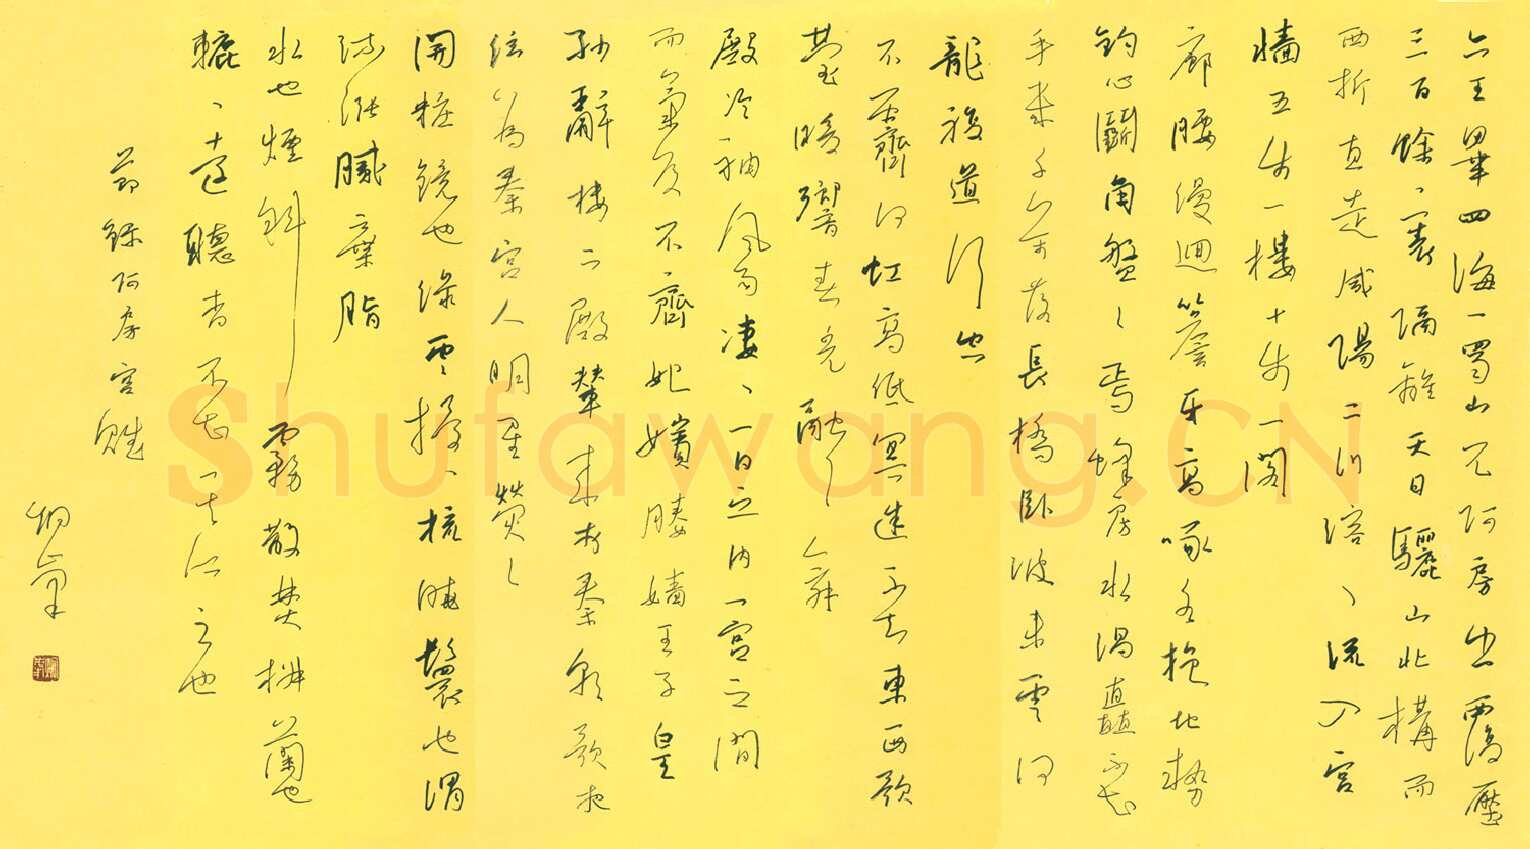 六王畢四海一蜀山兀阿房出覆壓
三百餘里隔離天日驪山北構而
西折直走咸陽二川溶、流入宮
牆五步一樓十步一閣
廊腰縵迴簷牙高啄各抱地勢
鈎心鬭角盤〻焉蜂房水渦矗不知
乎幾千萬落長橋臥波未雲何
龍複道行空
不霽何虹高低冥迷不知東西歌
臺暖響春光融〻舞
殿冷袖風雨凄、一日之内一宮之間
而氣候不齊妃嬪媵嬙王子皇
孫辭樓下殿輦來於秦朝歌夜
絃為秦宮人明星熒〻
開粧鏡也綠雲擾、梳曉鬟也渭
流漲膩棄脂
水也煙斜霧散焚椒蘭也
轆、遠聽杳不知其所之也
節錄阿房宮賦
Shufawang.CN